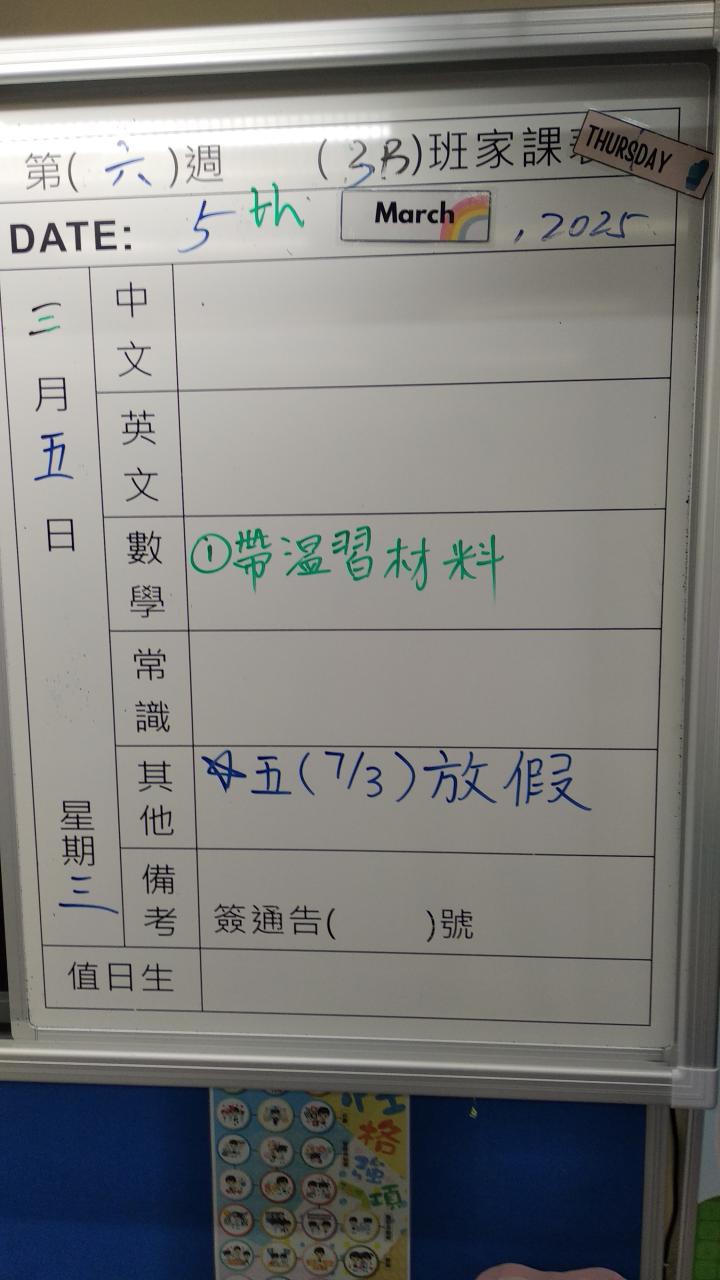 第(六)週 (3B)班家課表 THURSDAY
DATE: 5th March, 2025
三月五日
星期三
中文
英文
數學 ①帶溫習材料
常識
其他 ☆五(7/3)放假
備考 簽通告( )號
值日生
格
強
項